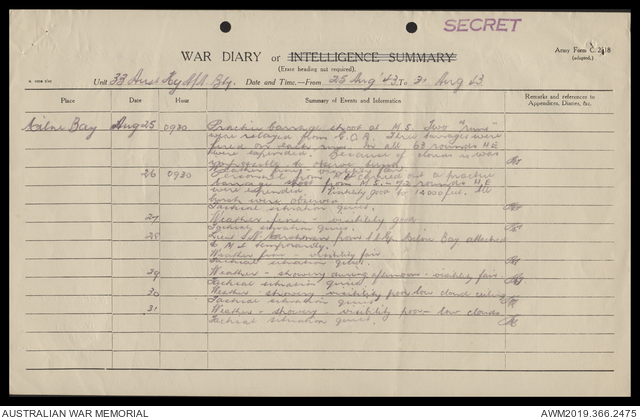 SECRET
WAR DIARY OF INTELLIGENCE SUMMARY
Army Form C. 2118
(adapted.)
(Erase heading not required).
Unit 33 Aust Hy A/A Bty. Date and Time.—From 25 Aug '43 To 31 Aug 43
Place
Date
Hour
Summary of Events and Information
Remarks and references to
Appendices, Diaries, &c.
Milne Bay Aug 25 0930 Practice barrage shoot at M.S. Two "runs"
were relayed from G.O.R. Three barrages were
fired on each run. In all 63 rounds H.E
were expended. Because of clouds it was
impossible to observe bursts.
Weather fine - visibility fair
26 0930 Personnel from carried out a practice
barrage shoot from M.S. - 42 rounds H.E
were expended. Visibility good to 12000 feet. All
bursts were observed
Tactical situation quiet.
27 Weather fine - visibility good.
Tactical situation quiet.
28 Lieut from Milne Bay attached
to M.S temporarily.
Weather fine - visibility fair
Tactical situation quiet.
29 Weather - showery during afternoon - visibility fair
Tactical situation quiet.
30 Weather - showery, visibility poor low cloud ceiling
Tactical situation quiet
31 Weather - showery - visibility poor - low clouds.
Tactical situation quiet.
AUSTRALIAN WAR MEMORIAL
AWM2019.366.2475